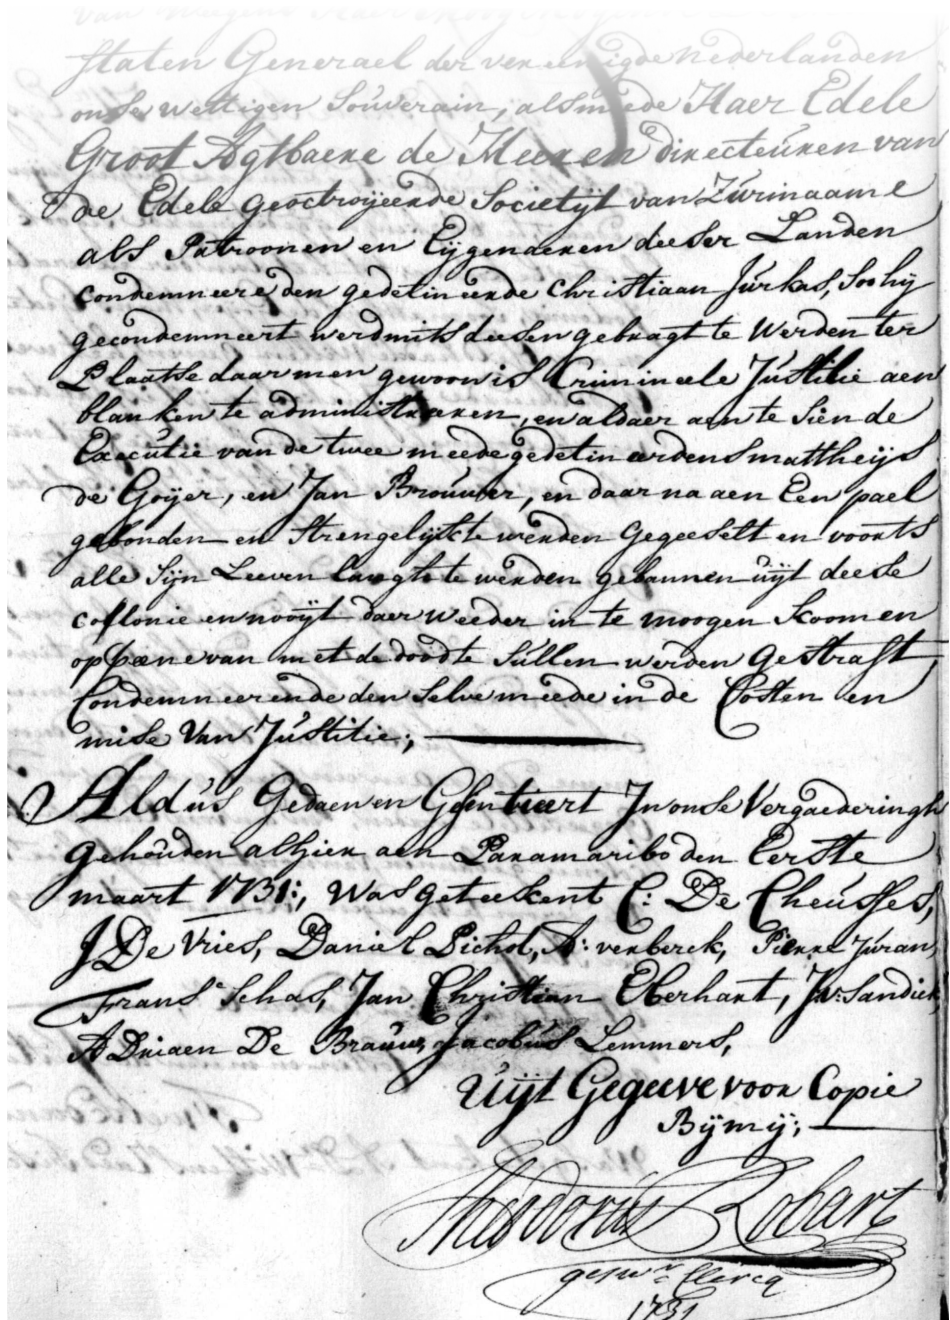 van weegens Haer Hoog Mogende
Staten Generael der vereenigde nederlanden
onse wettigen Souverain, alsmeede Haer Edele
Groot Agtbaere de Heeren directeuren van
de Edele geoctroijeerde Societijt van Zurinaame
als Patroonen en Eijgenaeren deeser Landen
condemneere den gedetineerde Christiaan Jurkas, Soo hij
gecondemneert werd mits deesen gebragt te werden ter
Plaatse daar men gewoon is Crimineele Justitie aen
blanken te administreeren, en aldaer aen te Sien de
Executie van de twee meede gedetineerdens mattheijs
de Goijer, en Jan Brouwer, en daar na aen Een pael
gebonden en Strengelijck te werden gegeeselt en voorts
alle Sijn Leeven langh te werden gebannen uijt deese
collonie en nooijt daer weeder in te moogen koomen
op pæne van met de dood te Sullen werden gestraft,
Condemneerende den Selve meede in de Costen en
mise van Justitie;
Aldus Gedaen en Gesentieert In onse Vergaederingh
gehouden alhier aen Paramaribo den Eerste
maart 1731:, Was geteekent C: De Cheusses,
J De Vries, Daniel Pichot, A: verberck, Pierre Juran,
Frans Schas, Jan Christiaan Eberhart, Jv: Sandick,
ADriaen De Brauw, Jacobus Lemmers,
Uijt Gegeeve voor Copie
Bij mij;
Theodorus Robart
gesw.r Clercq
1731